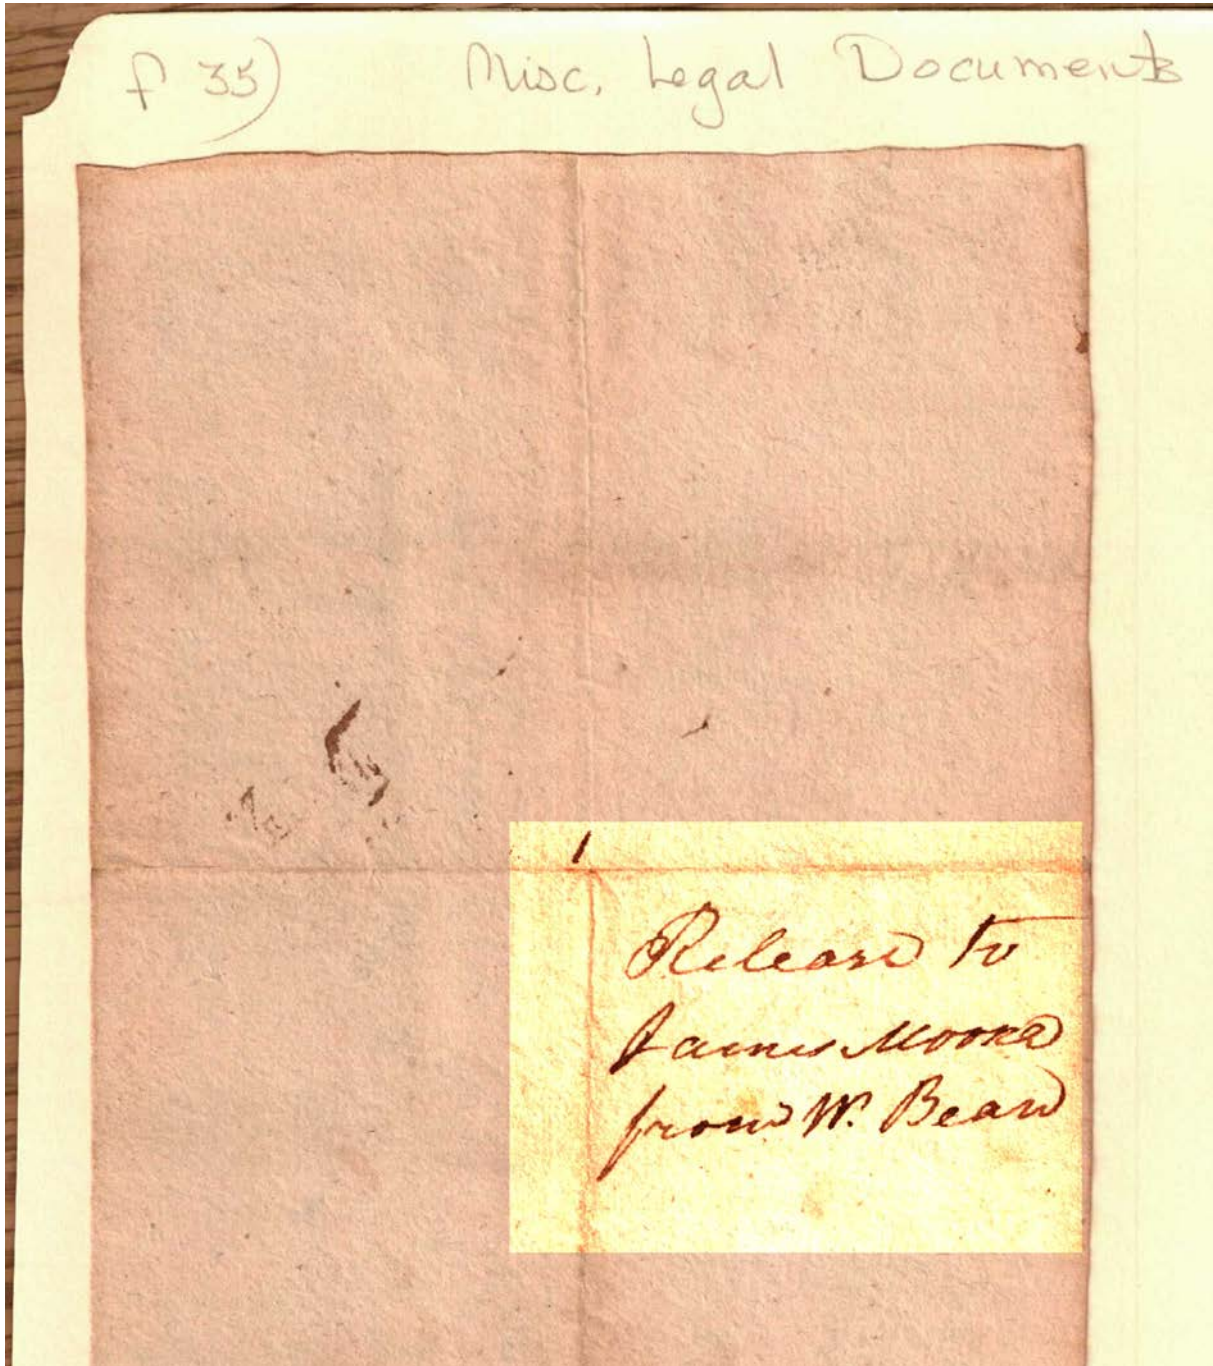 f 35) Misc. Legal Documents
Release to
James Moore
from W. Beard